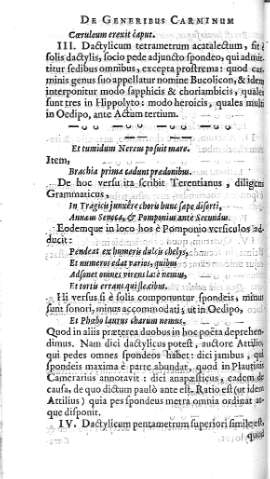 DE GENERIBUS CARMINUM
Cæruleum erexit caput.
III. Dactylicum tetrametrum acatalectum, fit è
solis dactylis, socio pede adjuncto spondeo, qui admit-
titur sedibus omnibus, excepta prostrema: quod car-
minis genus suo appellatur nomine Bucolicon, & idem
interponitur modo sapphicis & choriambicis, quales
sunt tres in Hippolyto: modo heroicis, quales multi
in Oedipo, ante Actum tertium.
Et tumidum Nerea posuit mare.
Item,
Brachia prima cadunt prædonibus.
De hoc versu ita scribit Terentianus, diligens
Grammaticus,
In Tragicis junxere choris hunc sæpe diserti,
Annæus Seneca, & Pomponius ante Secundus.
Eodemque in loco hos è Pomponio versiculos ad-
ducit:
Pendeat ex humeris dulcis chelys,
Et numeros edat varios, quibus
Adsonet omne virens late nemus,
Et tortis errans qui flexibus.
Hi versus si è solis componuntur spondeis, minus
sunt sonori, minus accommodati, ut in Oedipo,
Et Phœbo laurus charum nemus,
Quod in aliis præterea duobus in hoc poëta deprehen-
dimus. Nam dici dactylicus potest, auctore Attilio,
qui pedes omnes spondeos habet: dici jambus, qui
spondeis maxima è parte abundat, quod in Plautinis
Camerarius annotavit: dici anapæsticus, eadem de
causa, de quo dictum paulò ante est. Ratio est (ut idem
Attilius) quia pes spondeus metra omnia ordinat at-
que disponit.
IV. Dactylicum pentametrum superiori simile est,
quod